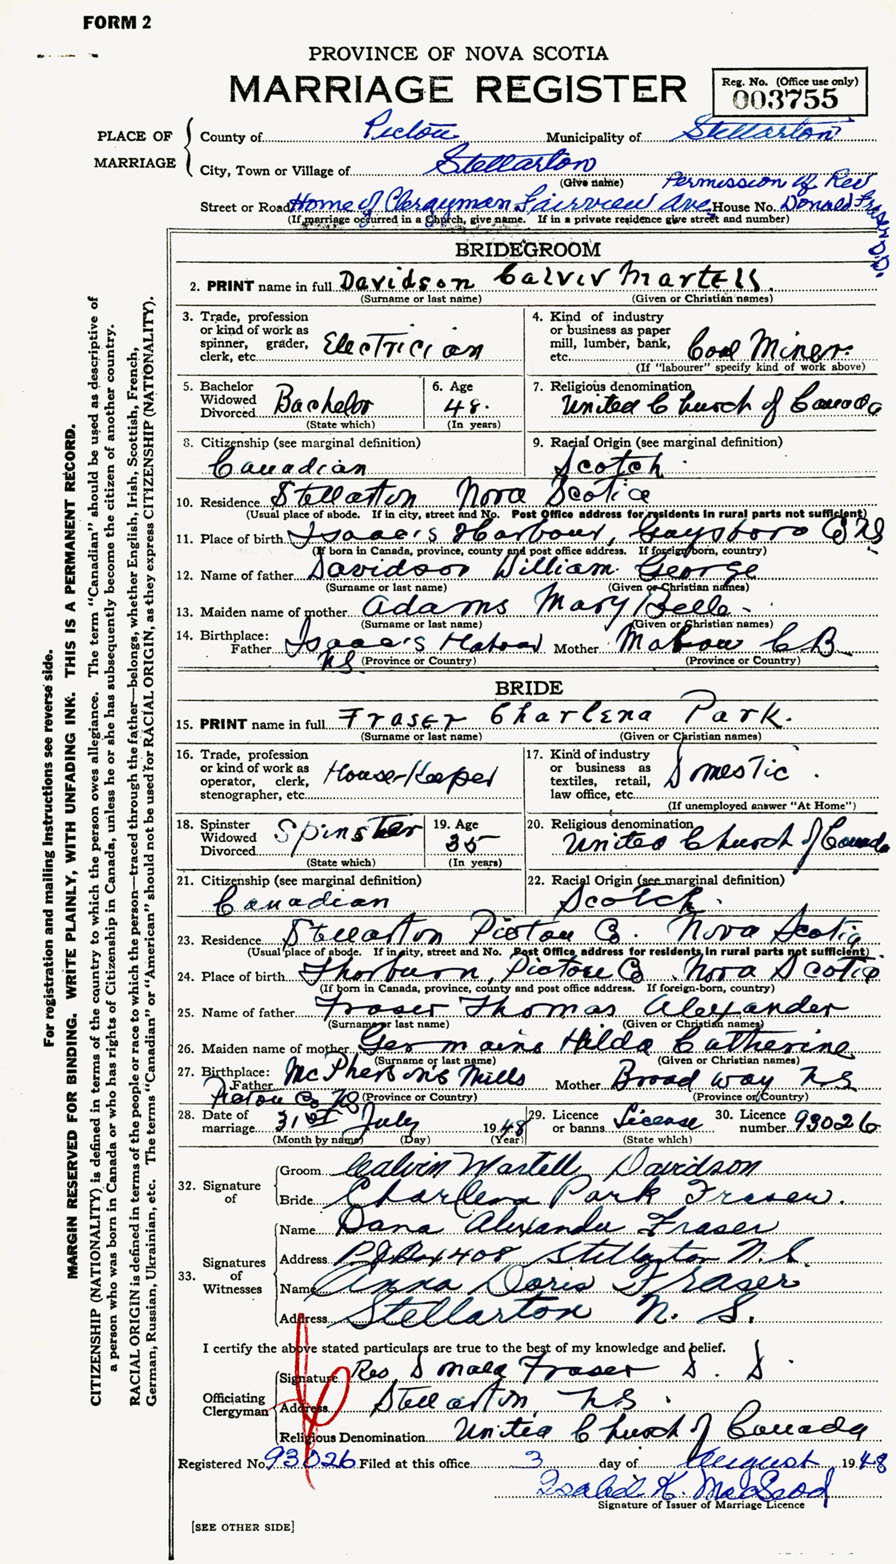 FORM 2
PROVINCE OF NOVA SCOTIA
MARRIAGE REGISTER
Reg. No. (Office use only)
003755
PLACE OF MARRIAGE
County of Pictou Municipality of Stellarton
City, Town or Village of Stellarton
(Give name) Permission of Rev
Street or Road Home of Clergyman Fairview Ave, House No. Donald Fraser D.D.
(If marriage occurred in a Church, give name. If in a private residence give street and number)
BRIDEGROOM
2. PRINT name in full Davidson Calvin Martell.
(Surname or last name) (Given or Christian names)
3. Trade, profession or kind of work as spinner, grader, clerk, etc. Electrician
4. Kind of industry or business as paper mill, lumber, bank, etc. Coal Mines.
(If "labourer" specify kind of work above)
5. Bachelor Widowed Divorced Bachelor
(State which)
6. Age 48.
(In years)
7. Religious denomination United Church of Canada
8. Citizenship (see marginal definition) Canadian
9. Racial Origin (see marginal definition) Scotch.
10. Residence Stellarton Nova Scotia
(Usual place of abode. If in city, street and No. Post Office address for residents in rural parts not sufficient)
11. Place of birth Isaac's Harbour, Gaysboro Co NS
(If born in Canada, province, county and post office address. If foreign born, country)
12. Name of father Davidson William George
(Surname or last name) (Given or Christian names)
13. Maiden name of mother Adams Mary Belle.
(Surname or last name) (Given or Christian names)
14. Birthplace: Father Isaac's NS Mother Mabou C B
(Province or Country) (Province or Country)
BRIDE
15. PRINT name in full Fraser Charlena Park.
(Surname or last name) (Given or Christian names)
16. Trade, profession or kind of work as operator, clerk, stenographer, etc. House-Keeper
17. Kind of industry or business as textiles, retail, law office, etc. Domestic.
(If unemployed answer "At Home")
18. Spinster Widowed Divorced Spinster
(State which)
19. Age 35
(In years)
20. Religious denomination United Church of Canada
21. Citizenship (see marginal definition) Canadian
22. Racial Origin (see marginal definition) Scotch.
23. Residence Stellarton Pictou Co. Nova Scotia
(Usual place of abode. If in city, street and No. Post Office address for residents in rural parts not sufficient)
24. Place of birth Thorburn, Pictou Co Nova Scotia
(If born in Canada, province, county and post office address. If foreign-born, country)
25. Name of father Fraser Thomas Alexander
(Surname or last name) (Given or Christian names)
26. Maiden name of mother Germaine Hilda Catherine
(Surname or last name) (Given or Christian names)
27. Birthplace: Father McPherson's Mills Pictou Co NS Mother Broad way N.S
(Province or Country) (Province or Country)
28. Date of marriage 31st July 1948
(Month by name) (Day) (Year)
29. Licence or banns License
(State which)
30. Licence number 93026
32. Signature of
Groom Calvin Martell Davidson
Bride Charlena Park Fraser.
33. Signatures of Witnesses
Name Dana Alexander Fraser
Address P.O Box 408 Stellarton N.S.
Name Anna Doris Fraser
Address Stellarton N. S.
I certify the above stated particulars are true to the best of my knowledge and belief.
Officiating Clergyman
Signature Rev Donald Fraser D. D.
Address Stellarton, N.S.
Religious Denomination United Church of Canada
Registered No. 93026 Filed at this office 3 day of August 1948
Isabel K. MacLeod
Signature of Issuer of Marriage Licence
[SEE OTHER SIDE]
For registration and mailing instructions see reverse side.
MARGIN RESERVED FOR BINDING. WRITE PLAINLY, WITH UNFADING INK. THIS IS A PERMANENT RECORD.
CITIZENSHIP (NATIONALITY) is defined in terms of the country to which the person owes allegiance. The term "Canadian" should be used as descriptive of
a person who was born in Canada or who has rights of Citizenship in Canada, unless he or she has subsequently become the citizen of another country.
RACIAL ORIGIN is defined in terms of the people or race to which the person—traced through the father—belongs, whether English, Irish, Scottish, French,
German, Russian, Ukrainian, etc. The terms "Canadian" or "American" should not be used for RACIAL ORIGIN, as they express CITIZENSHIP (NATIONALITY).